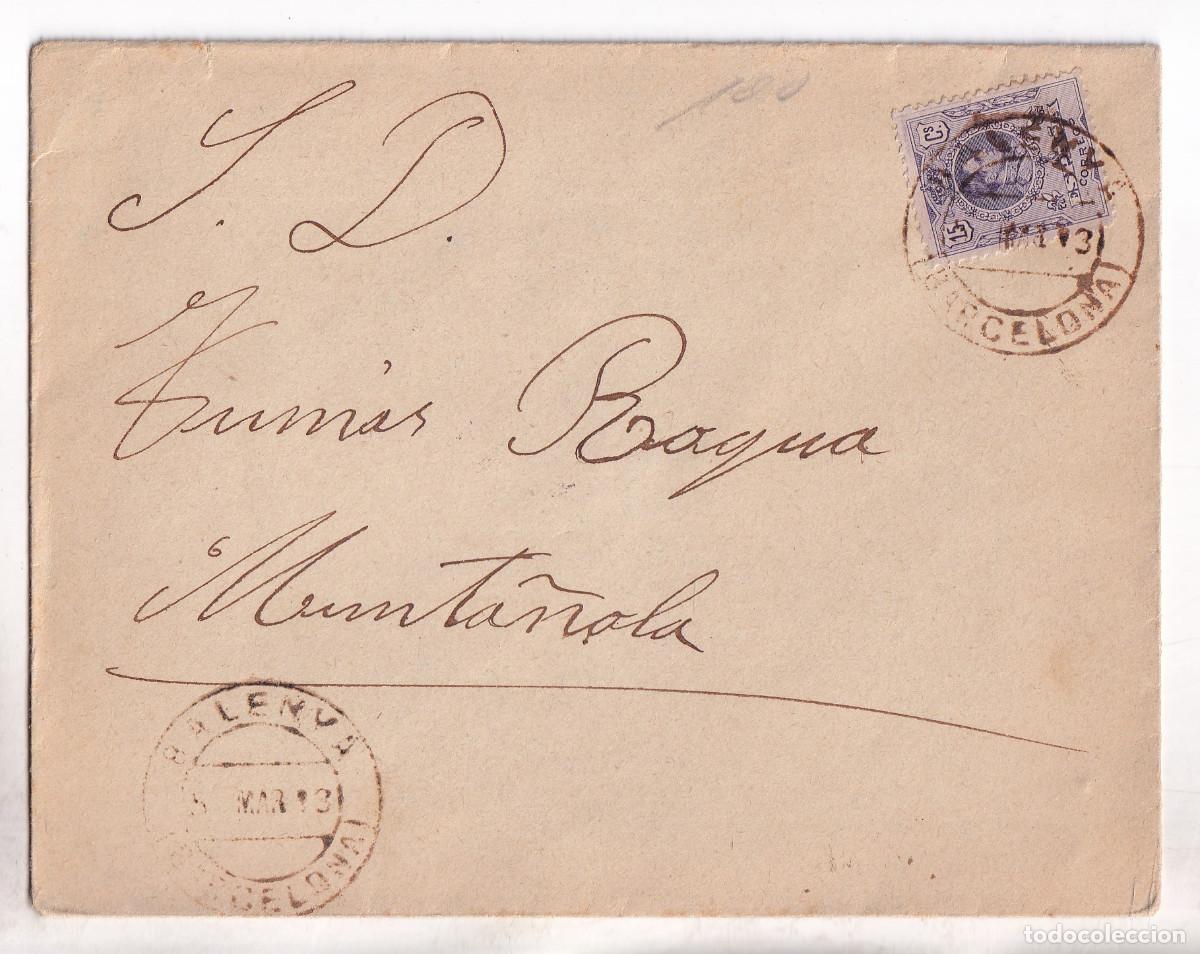 180
15 Cs.
CORREOS
MAR 13
(BARCELONA)
S. D.
Tumás Ragua
Muntañola
BALENYA
MAR 13
(BARCELONA)
todocoleccion